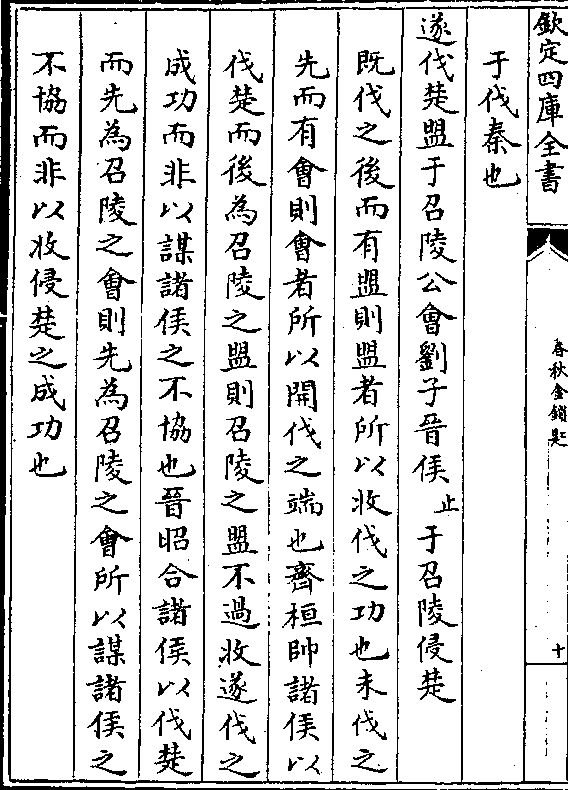 欽定四庫全書
春秋金鎖匙
十
于伐秦也
遂伐楚盟于召陵公會劉子晉侯止于召陵侵楚
既伐之後而有盟則盟者所以收伐之功也未伐之
先而有會則會者所以開伐之端也齊桓帥諸侯以
伐楚而後為召陵之盟則召陵之盟不過收遂伐之
成功而非以謀諸侯之不協也晉昭合諸侯以伐楚
而先為召陵之會則先為召陵之會所以謀諸侯之
不協而非以收侵楚之成功也